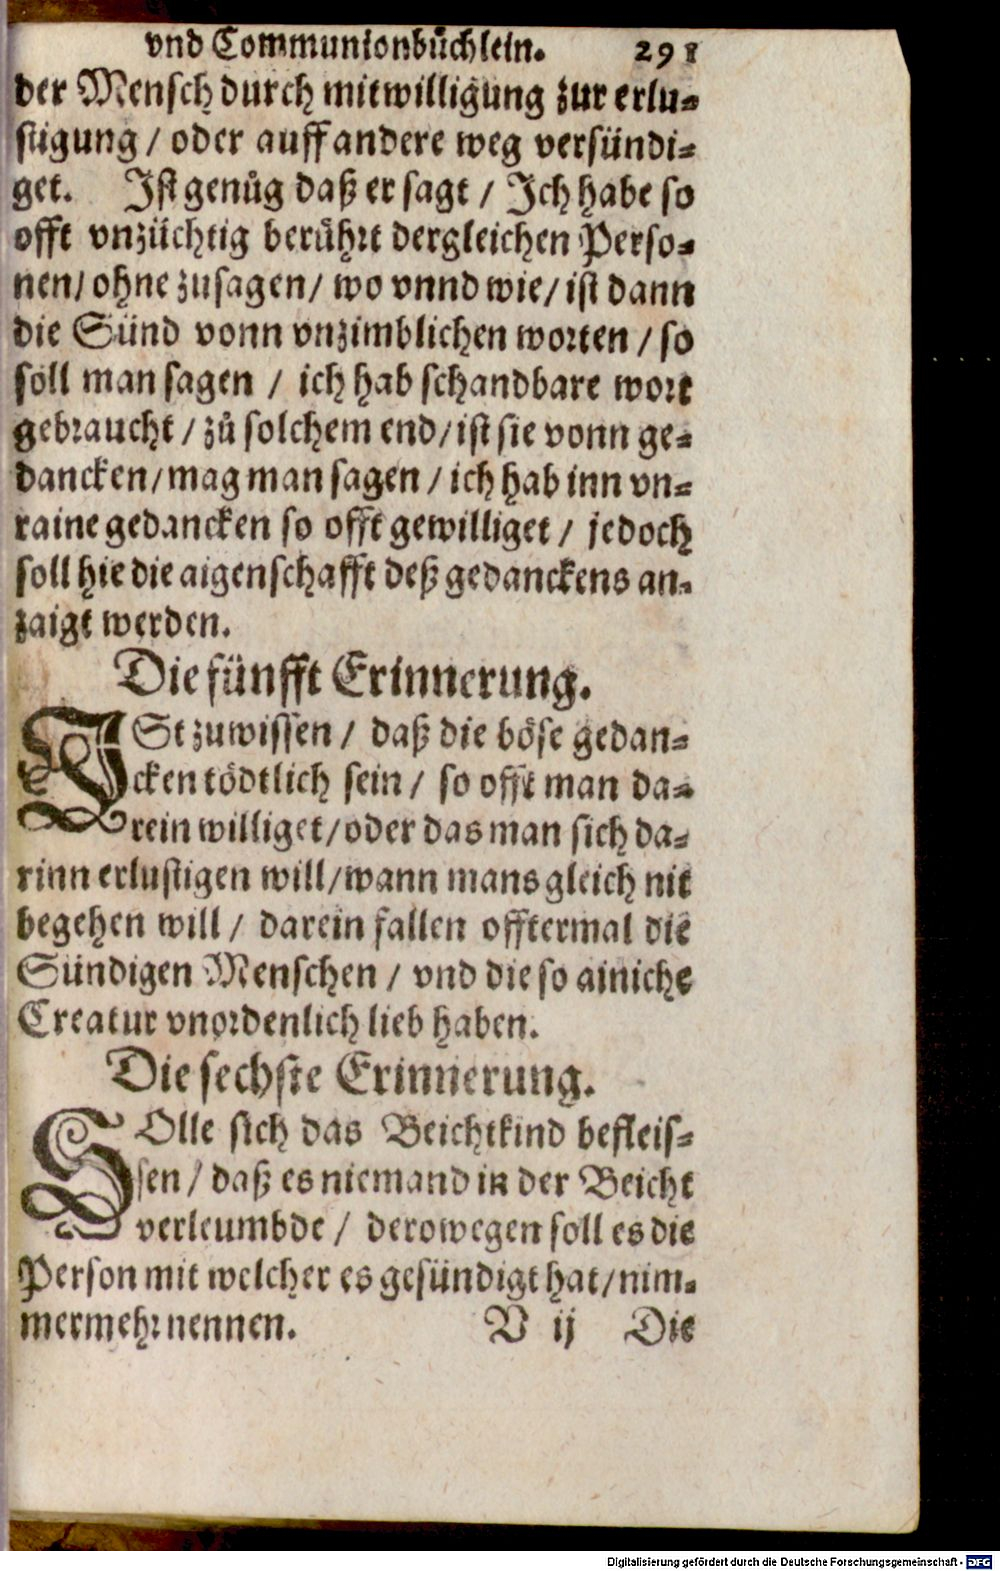 vnd Communionbüchlein. 291
der Mensch durch mitwilligung zur erlu⸗
stigung / oder auff andere weg versündi⸗
get. Ist genůg daß er sagt / Ich habe so
offt vnzüchtig berührt dergleichen Perso⸗
nen/ ohne zusagen/ wo vnnd wie/ ist dann
die Sünd vonn vnzimblichen worten / so
soll man sagen / ich hab schandbare wort
gebraucht / zů solchem end/ ist sie vonn ge⸗
dancken/ mag man sagen / ich hab inn vn⸗
raine gedancken so offt gewilliget / jedoch
soll hie die aigenschafft deß gedanckens an⸗
zaigt werden.
Die fünfft Erinnerung.
ISt zuwissen / daß die böse gedan⸗
cken tödtlich sein / so offt man da⸗
rein williget/ oder das man sich da⸗
rinn erlustigen will/ wann mans gleich nit
begehen will / darein fallen offtermal die
Sündigen Menschen / vnd die so ainiche
Creatur vnordenlich lieb haben.
Die sechste Erinnerung.
SOlle sich das Beichtkind befleis⸗
sen / daß es niemand in der Beicht
verleumbde / derowegen soll es die
Person mit welcher es gesündigt hat/ nim⸗
mermehr nennen. V ij Die
Digitalisierung gefördert durch die Deutsche Forschungsgemeinschaft - DFG